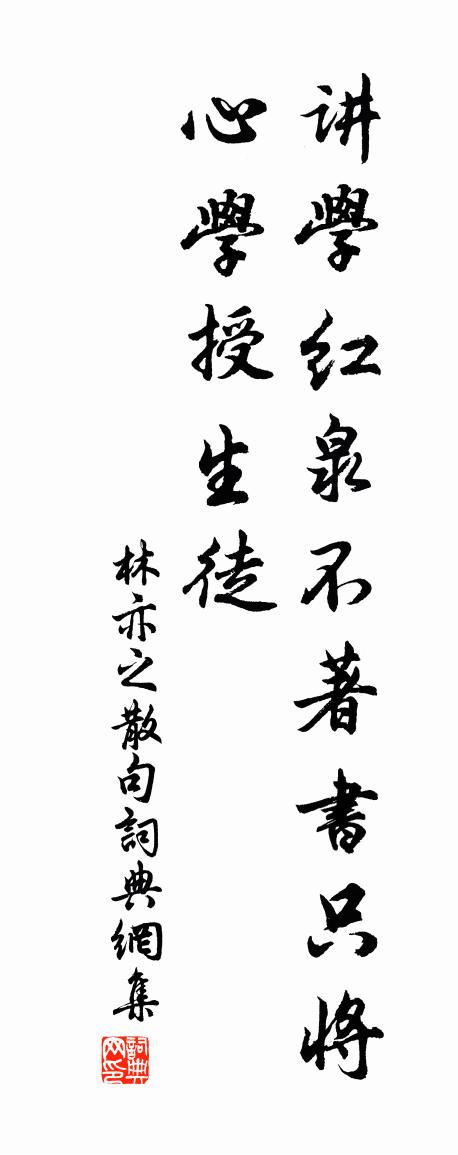 讲學红泉不著書只將
心學授生徒
林亦之散句詞典網集
詞典网印